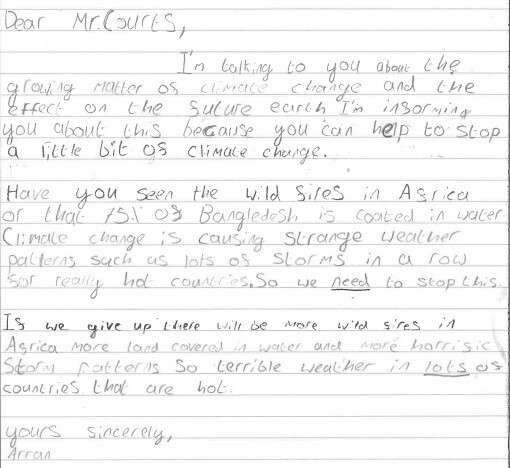 Dear Mr.Courts,
I'm talking to you about the
growing matter of climate change and the
effect on the future earth I'm informing
you about this because you can help to stop
a little bit of climate change.
Have you seen the wild fires in Africa
or that 75% of Bangledesh is coated in water.
Climate change is causing strange weather
patterns such as lots of storms in a row
for really hot countries. So we need to stop this.
If we give up there will be more wild fires in
Africa more land covered in water and more horrific
storm patterns so terrible weather in lots of
countries that are hot.
yours sincerely,
Arran